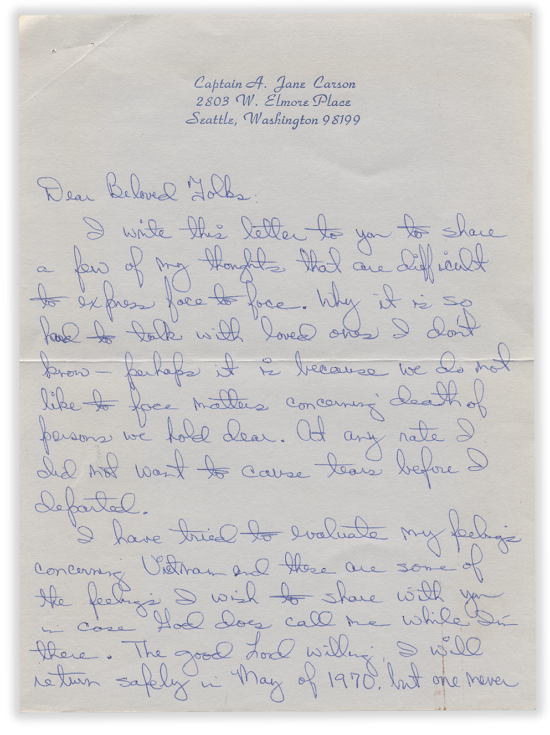 Captain A. Jane Carson
2803 W. Elmore Place
Seattle, Washington 98199
Dear Beloved Folks:
I write this letter to you to share
a few of my thoughts that are difficult
to express face to face. Why it is so
hard to talk with loved ones I don't
know — perhaps it is because we do not
like to face matters concerning death of
persons we hold dear. At any rate I
did not want to cause tears before I
departed.
I have tried to evaluate my feelings
concerning Vietnam and these are some of
the feelings I wish to share with you
in case God does call me while I'm
there. The good Lord willing, I will
return safely in May of 1970, but one never